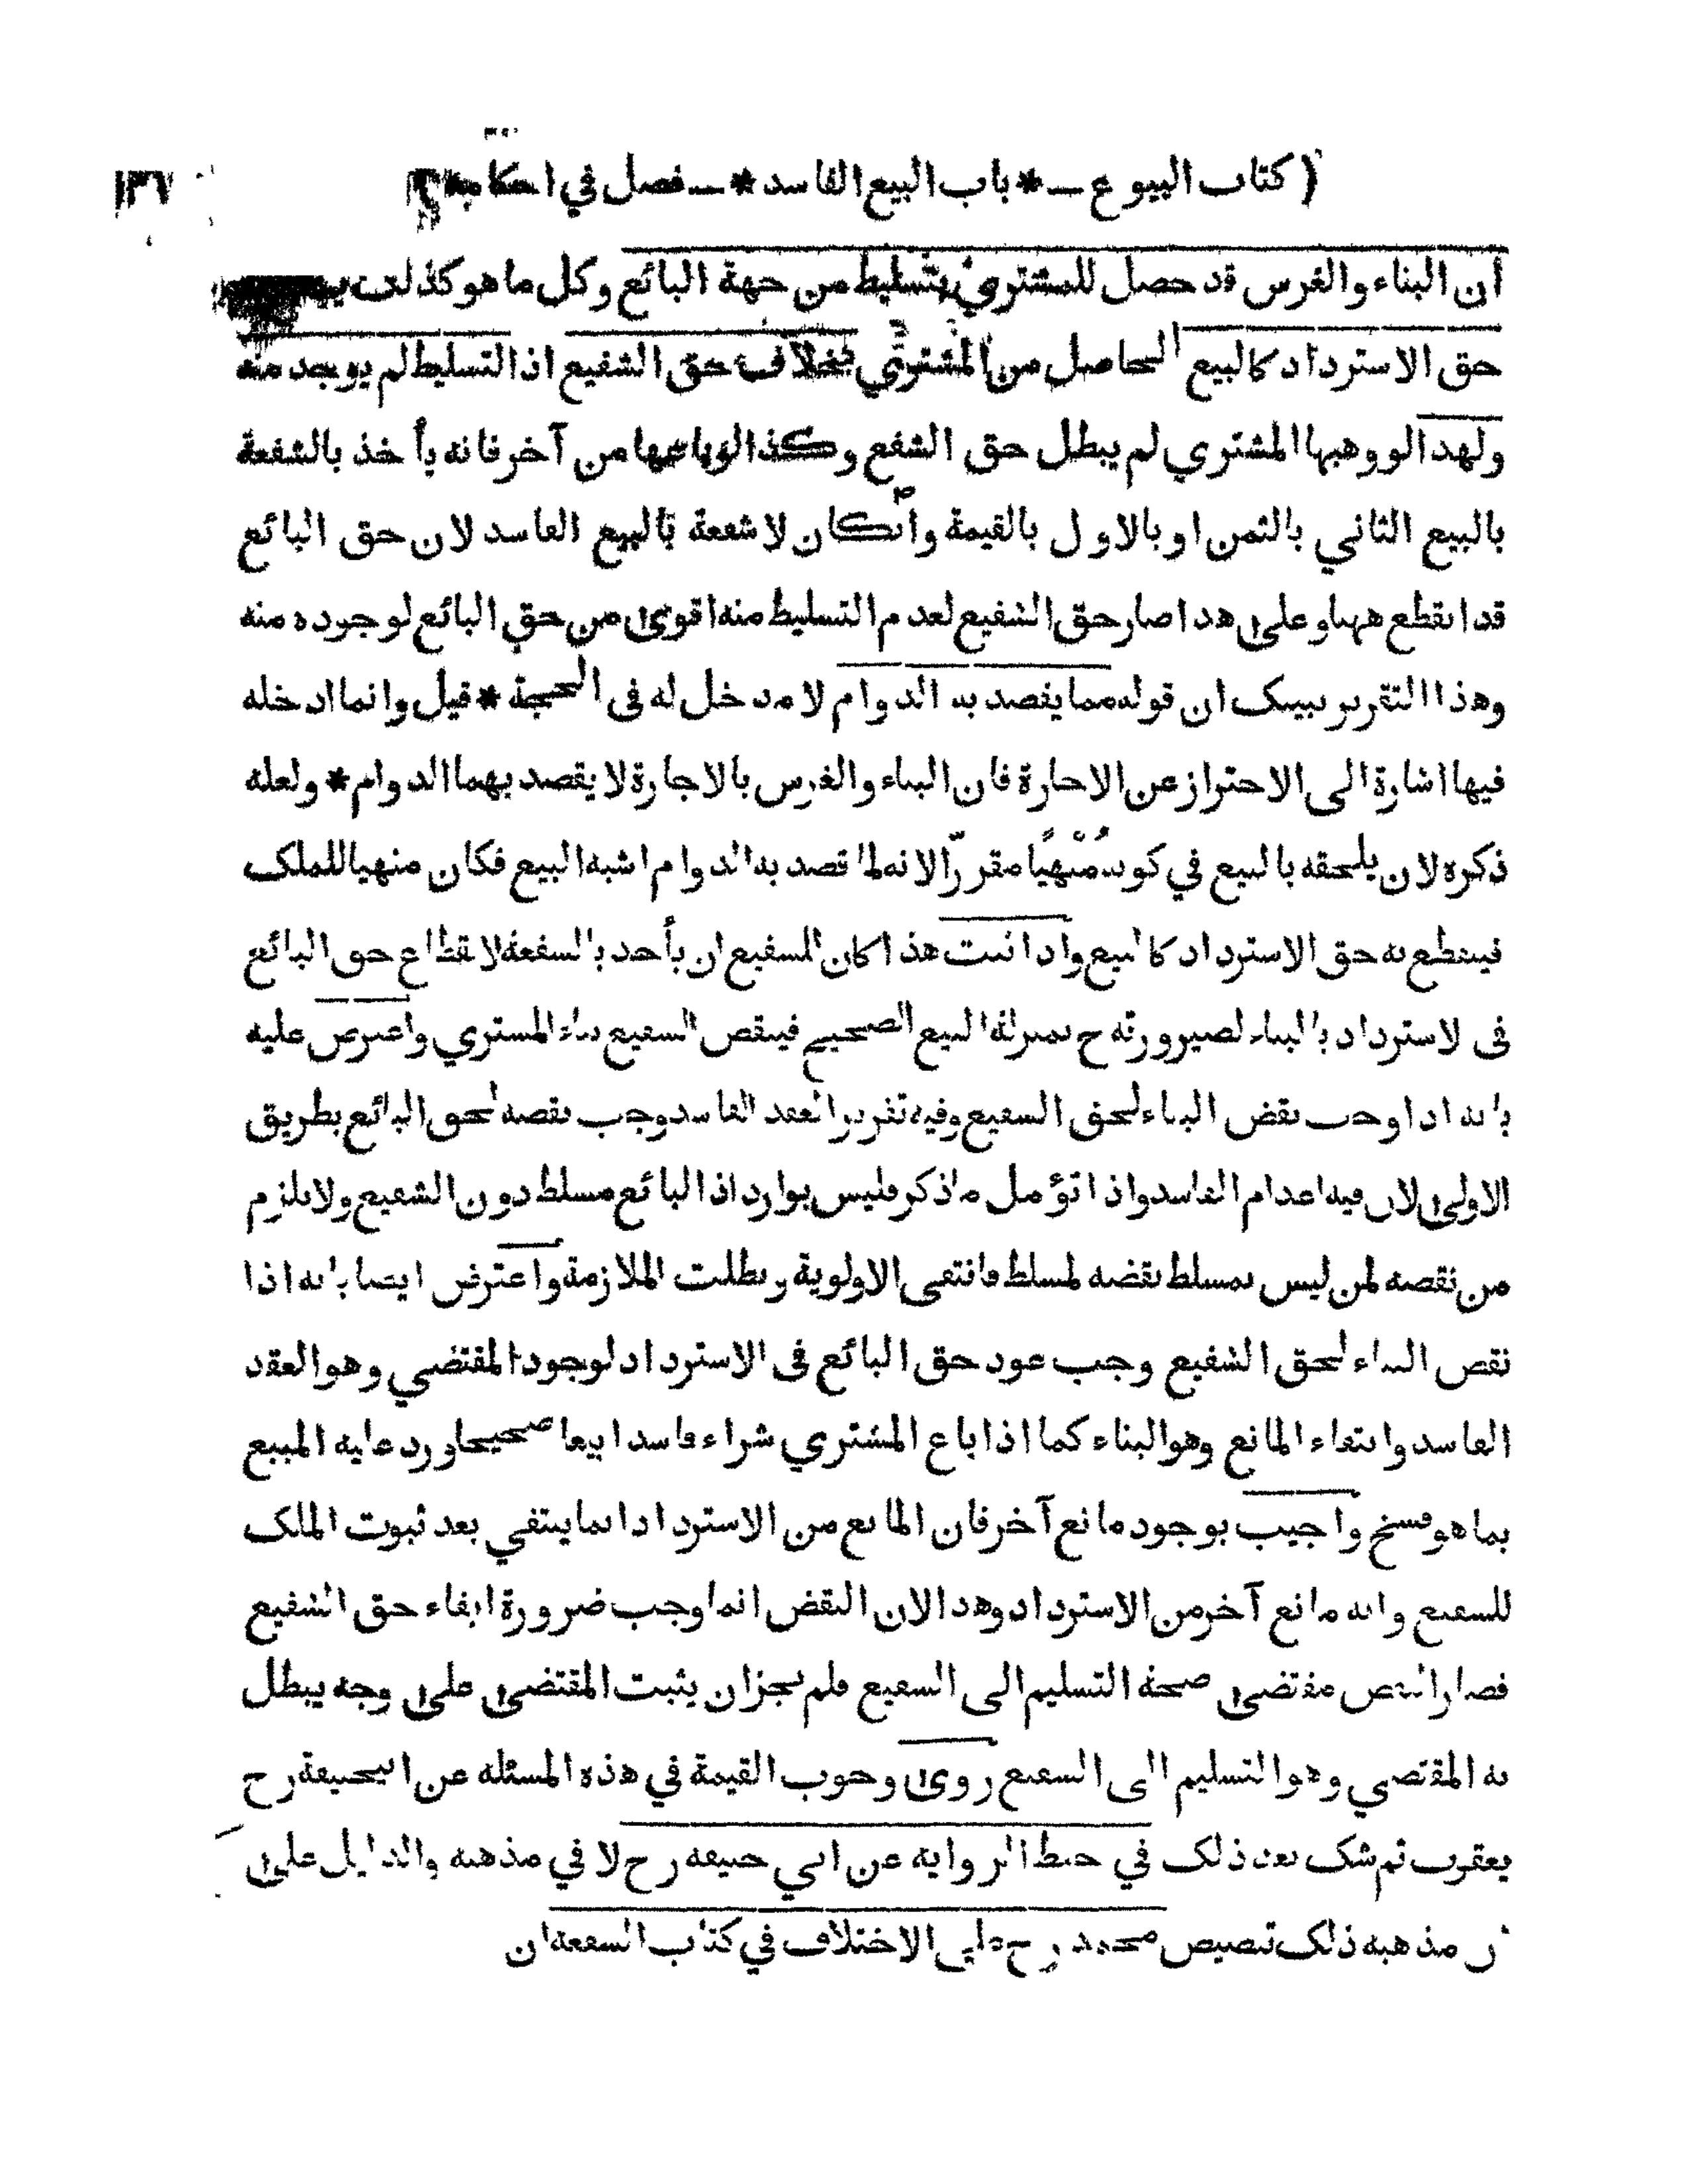 ( كتاب البيوع ــ * باب البيع الفاسد * ــ فصل في احكامه ) ١٣٧
ان البناء والغرس قد حصل للمشتري بتسليط من جهة البائع وكل ما هو كذلك
حق الاسترداد كالبيع الحاصل من المشتري بخلاف حق الشفيع اذ التسليط لم يوجد منه
ولهذا لو وهبها المشتري لم يبطل حق الشفع وكذا لو باعها من آخر فانه يأخذ بالشفعة
بالبيع الثاني بالثمن او بالاول بالقيمة وانكان لا شفعة بالبيع الفاسد لان حق البائع
قد انقطع ههنا وعلى هذا صار حق الشفيع لعدم التسليط منه اقوى من حق البائع لوجوده منه
وهذا التقرير يبيك ان قوله مما يقصد به الدوام لا مدخل له فى الحجة * قيل وانما ادخله
فيها اشارة الى الاحتراز عن الاجارة فان البناء والغرس بالاجارة لا يقصد بهما الدوام * ولعله
ذكره لان يلحقه بالبيع في كونه منهيا مقررا لانه لما قصد به الدوام اشبه البيع فكان منهيا للملك
فينقطع به حق الاسترداد كالبيع واذا ثبت هذا كان للشفيع ان يأخذ بالشفعة لانقطاع حق البائع
فى لاسترداد بالبناء لصيرورته ح بمنزلة البيع الصحيح فينقض الشفيع بناء المشتري واعترض عليه
بانه اذا وجب نقض البناء لحق الشفيع وفيه تقرير العقد الفاسد وجب نقضه لحق البائع بطريق
الاولى لان فيه اعدام الفاسد واذا تؤمل ما ذكر فليس بوارد اذ البائع مسلط دون الشفيع ولا يلزم
من نقضه لمن ليس بمسلط نقضه لمسلط فانتفى الاولوية وبطلت الملازمة واعترض ايضا بانه اذا
نقض البناء لحق الشفيع وجب عود حق البائع فى الاسترداد لوجود المقتضي وهو العقد
الفاسد وانتفاء المانع وهو البناء كما اذا باع المشتري شراء فاسدا بيعا صحيحا ورد عليه المبيع
بما هو فسخ واجيب بوجود مانع آخر فان المانع من الاسترداد انما ينتفي بعد ثبوت الملك
للشفيع وانه مانع آخر من الاسترداد وهذا لان النقض انما وجب ضرورة ايفاء حق الشفيع
فصار النقض مقتضى صحة التسليم الى الشفيع فلم يجز ان يثبت المقتضى على وجه يبطل
به المقتضي وهو التسليم الى الشفيع روى وجوب القيمة في هذه المسئله عن ابيحنيفة رح
يعقوب ثم شك بعد ذلك في حفظ الرواية عن ابي حنيفه رح لا في مذهبه والدليل على
ان مذهبه ذلك تنصيص محمد رح على الاختلاف في كتاب الشفعه ان